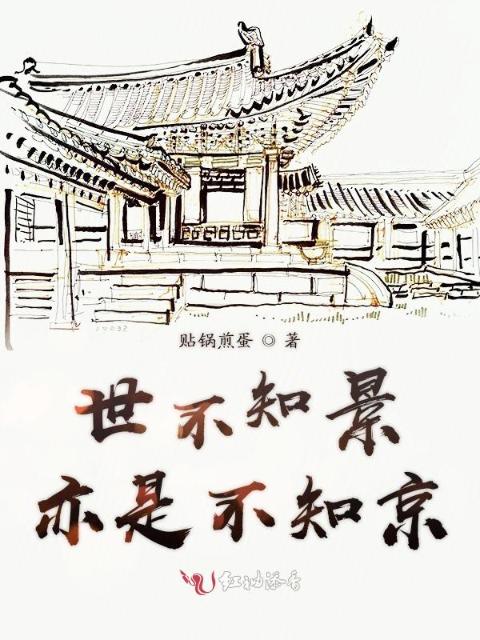 贴锅煎蛋 ◎ 著
世不知景
亦是不知京
红袖添香